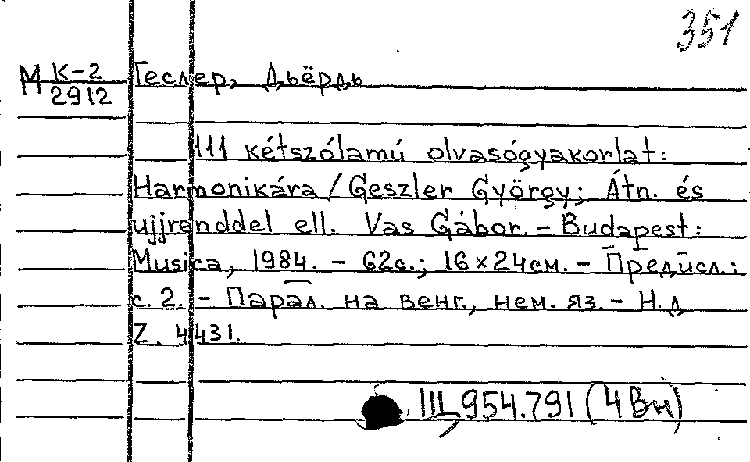 351
М К-2/2912 Геслер, Дьёрдь
111 kétszólamú olvasógyakorlat:
Harmonikára / Geszler György; Átn. és
ujjrenddel ell. Vas Gábor. – Budapest:
Musica, 1984. – 62с.; 16×24см. – Предисл.:
с. 2. – Парал. на венг., нем. яз. – Н. д.
Z. 4431.
Щ954.791 (4Вн)